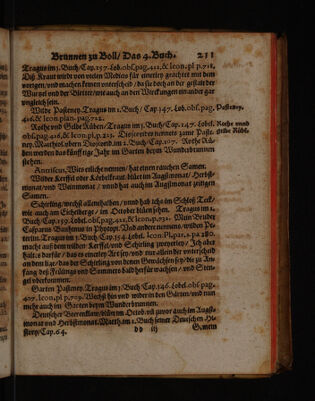 Brunnen zu Boll / Das 4. Buch. 211
Tragus im 3. Buch / Cap. 157. Lob. obs. pag. 411, & Icon. pl. p. 711.
Diß Kraut wird von vielen Medics für einerley geachtet mit dem
vorigen, und machen keinen unterscheid / da doch an der gestalt der
Wurtzel und der Bletter / wie auch an den Würckungen ein ander gar
ungleich sein.
Wilde Pasteney. Tragus im 1. Buch / Cap. 147. Lob. obs. pag. Pasteney.
416, & Icon. plan. pag. 722.
Rothe und Gelbe Rüben / Tragus im 1. Buch / Cap. 147. Lobel. Rothe und
obs. pag. & Icon. pl. p. 723. Dioscorides nennets zame Paste- gelbe Rüb.
ney. Matthiol. übern Dioscorid. im 2. Buch / Cap. 107. Rothe Rü-
ben werden das künfftige Jahr im Garten beym Wunderbrunnen
haben.
nennen / hat einen rauchen Samen.
Wilder Kerffel oder Körbelkraut blüet im Augstmon / Herbst-
monat / und Weinmonat / unnd hat auch im Augstmonat zeitigen
Samen.
Schirling / wechst allenthalben / unnd hab ich im Schloß Teck /
wie auch im Eichelberge / im October blüen sehen. Tragus im 1.
Buch / Cap. 159. Lobel. obs. pag. 422, & Icon. pl. p. 732. Mein Bruder
Casparus Bauhinus in Phytop. Und andere nennens, wilden Pe-
terlin. Tragus im 3. Buch / Cap. 154. Lobel. Icon. Pl. par. 2. pa. 280.
macht auß dem wilden Kerffel / und Schirling zweyerley / Ich aber
halte es dafür / das es einerley Art sey / nur das ein unterscheidt an
dem Ort / da das der Schirling von denen Gewechsen sey / die zu An-
fang deß Frülings und Sommers bald herfür wachsen / und Sten-
gel uberkommen.
Garten Pasteney. Tragus im 3. Buch / Cap. 146. Lobel. obs. pag.
407, Icon. pl. p. 709. Wechst hin und wider in den Gärten / und nun
mehr auch im Garten beym Wunderbrunnen.
Deutscher Beerenklaw / blüen im Octob. und zuvor im Augst-
monat und Herbstmonat. Matth. im 1. Buch seiner Deutschen Hi-
story / Cap. 64.
dd iij
G. mein